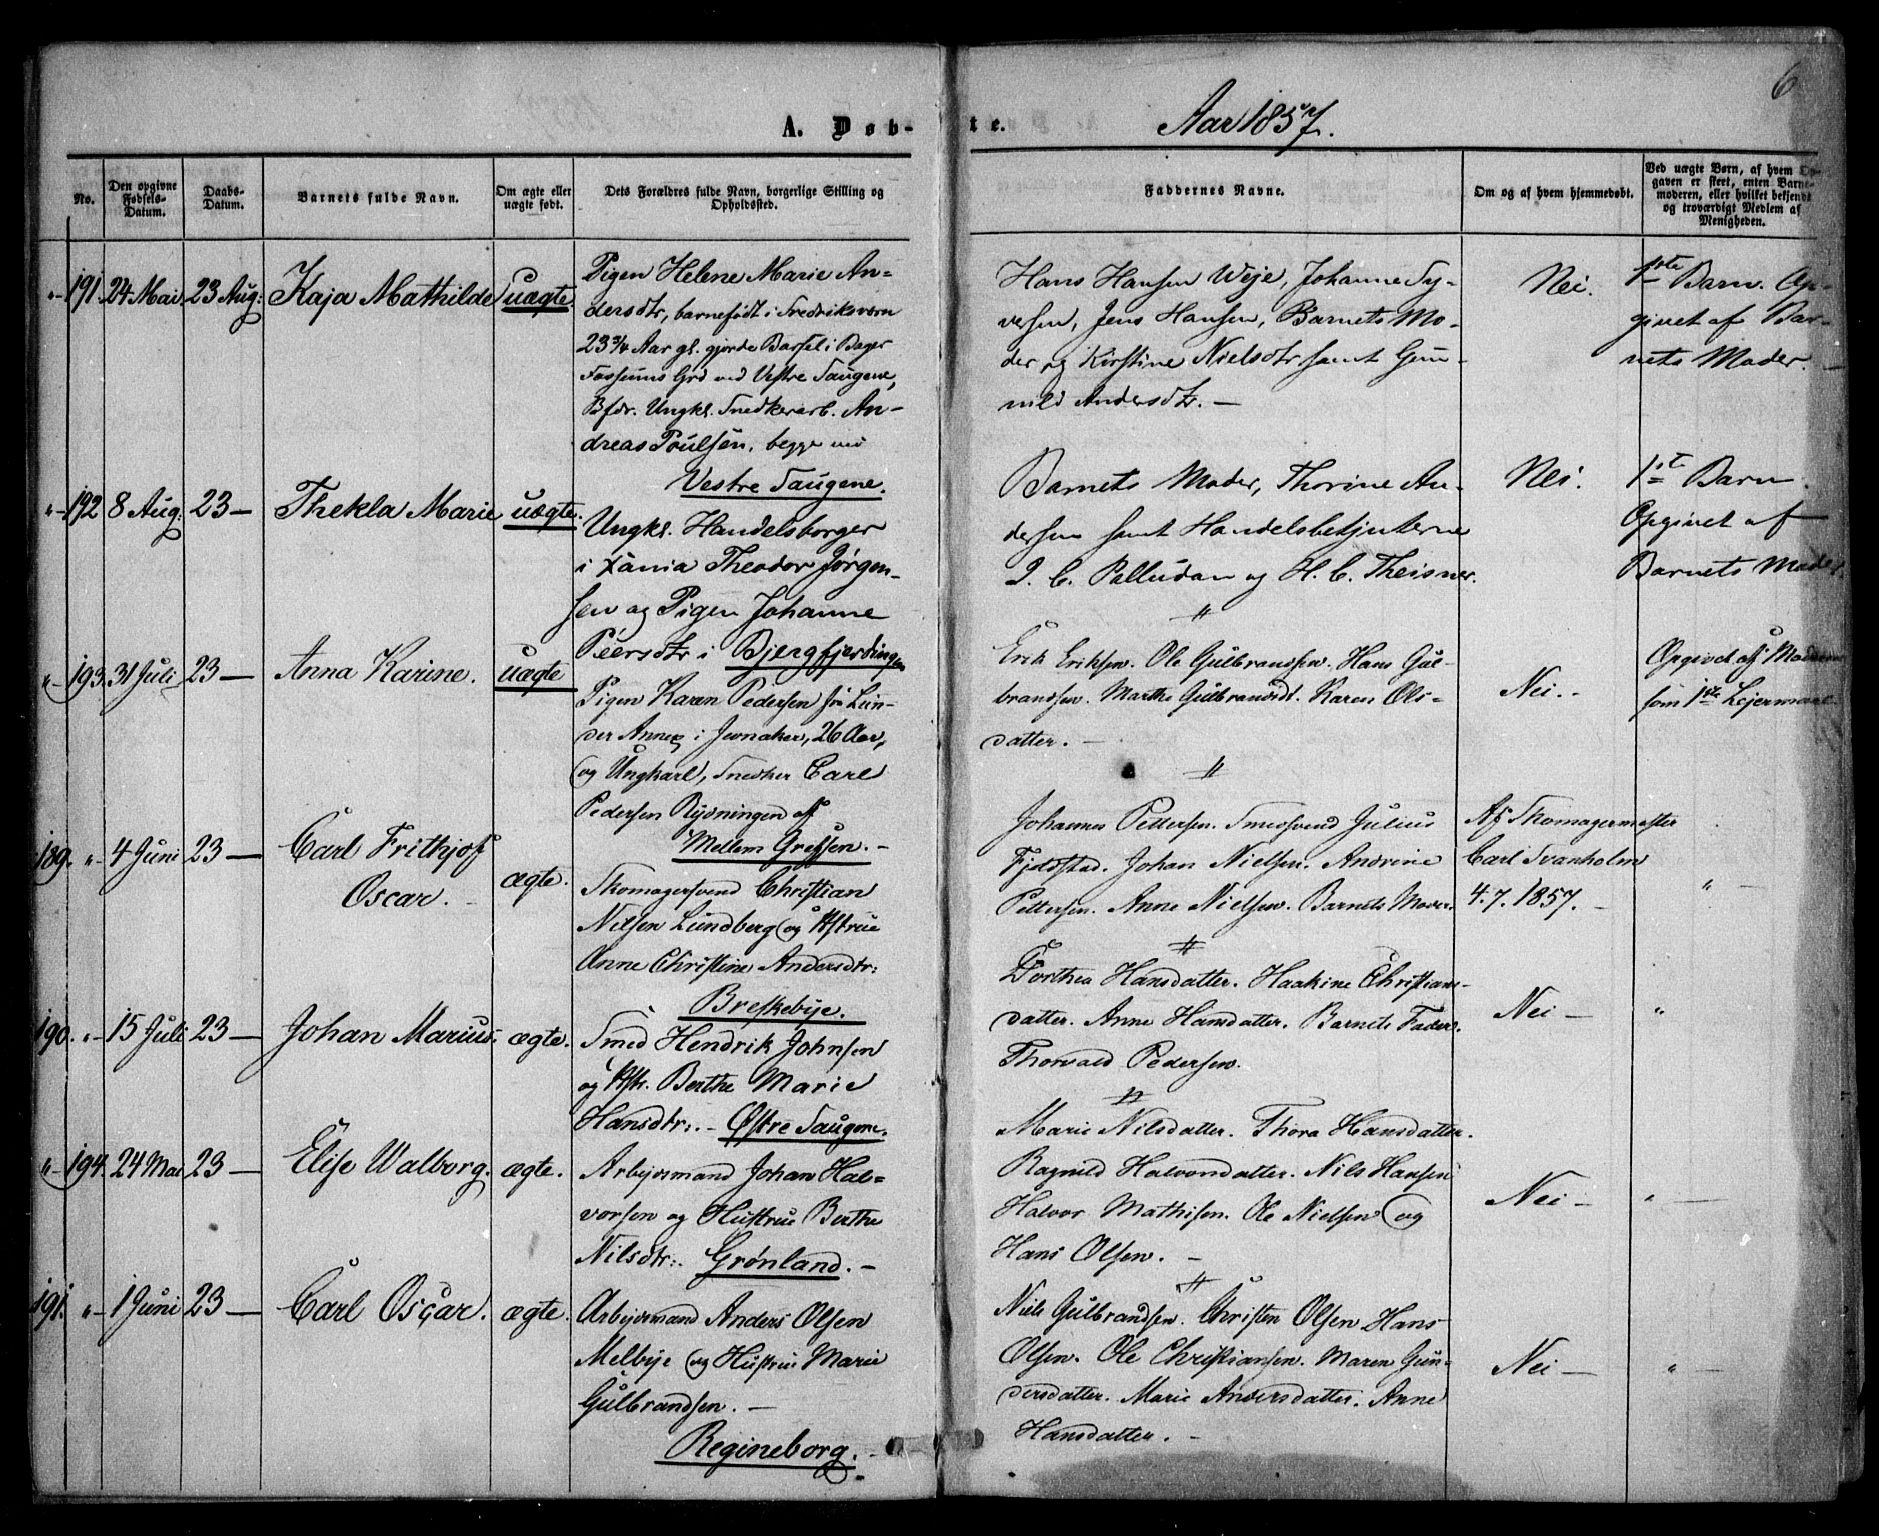 6
A. Døb-
te.
Aar 1857.
No.
Den opgivne
Fødsels-
Datum.
Daabs-
Datum.
Barnets fulde Navn.
Om ægte eller
uægte født.
Dets Forældres fulde Navn, borgerlige Stilling og
Opholdssted.
Faddernes Navne.
Om og af hvem hjemmedøbt.
Ved uægte Børn, af hvem Op-
gaven er skeet, enten Barne-
moderen, eller hvilket bekjendt
og troværdigt Medlem af
Menigheden.
"- 191. 24 Mai 23 Aug: Kaja Mathilde uægte
Pigen Helene Marie An-
dersdtr, barnefødt i Fredriksværn
23 3/4 Aar gl. gjorde Barsel i Bager
Fossums Grd ved Vestre Saugene,
Bfdr. Ungkl. Snedkerarb. An-
dreas Poulsen, begge ved
Vestre Saugene.
Hans Hansen Weje, Johanne Sy-
versen, Jens Hansen, Barnets Mo-
der og Kirstine Nielsdtr samt Gun-
nild Andersdtr. —
Nei.
1ste Barn. Op-
givet af Bar-
nets Moder. —
"- 192 8 Aug: 23 — Thekla Marie uægte.
Ungkl. Handelsborger
i Xania Theodor Jørgen-
sen og Pigen Johanne
Peersdtr i Bjergfjerdingen
Barnets Moder, Thorine An-
dersen samt Handelsbetjenterne
I. C. Palludan og H. C. Theisner.
"
Nei.
1st Barn.
Opgivet af
Barnets Moder.
"- 193. 31 Juli 23 — Anna Karine. uægte
Pigen Karen Pedersen frå Lun-
der Annex i Jevnaker, 26 Aar,
og Ungkarl, Snedker Carl
Pedersen Rydningen af
Mellem Grefsen. —
Erik Eriksen. Ole Gulbrandsen. Hans Gul-
brandsen. Marthe Gulbrandsdt. Karen Ols-
datter. —
"
Nei. -
Opgivet af Moderen
som 1ste Lejermaal.
189. "- 4 Juni 23 — Carl Frithjof
Oscar. - ægte.
Skomagersvend Christian
Nilsen Lundberg og Hstrue
Anne Christine Andersdtr:
Breskebye.
Johannes Pettersen. Smedsvend Julius
Fjeldstad. Johan Nielsen. Andrine
Pettersen. Anne Nielsen. Barnets Moder.
"
Af Skomagermester
Carl Svanholm
4. 7. 1857. -
" -
190. "- 15 Juli 23 — Johan Marius. ægte.
Smed Hendrik Johnsen
og Hstr. Berthe Marie
Hansdtr:. - Østre Saugene.
Dorthea Hansdatter. Haakine Christians-
datter. Anne Hansdatter. Barnets Fader.
Thorvald Pedersen.
"
Nei —
"
"- 194. 24 Mai 23 — Elise Walborg. ægte.
Arbejdsmand Johan Hal-
vorsen og Hustrue Berthe
Nilsdtr:. Grønland. -
Marie Nilsdatter. Thora Hansdatter.
Ragnild Halvorsdatter. Nils Hansen
Halvor Mathisen. Ole Nielsen og
Hans Olsen. -
"
Nei —
" —
191. "- 1 Juni 23 — Carl Oscar. ægte.
Arbejdsmand Anders Olsen
Melbye og Hustrue Marie
Gulbrandsen. —
Regineborg. -
Niels Gulbrandsen. Christen Olsen Hans
Olsen. Ole Christiansen. Maren Gun-
dersdatter. Marie Andersdatter. Anne
Hansdatter. -
Nei —
" -